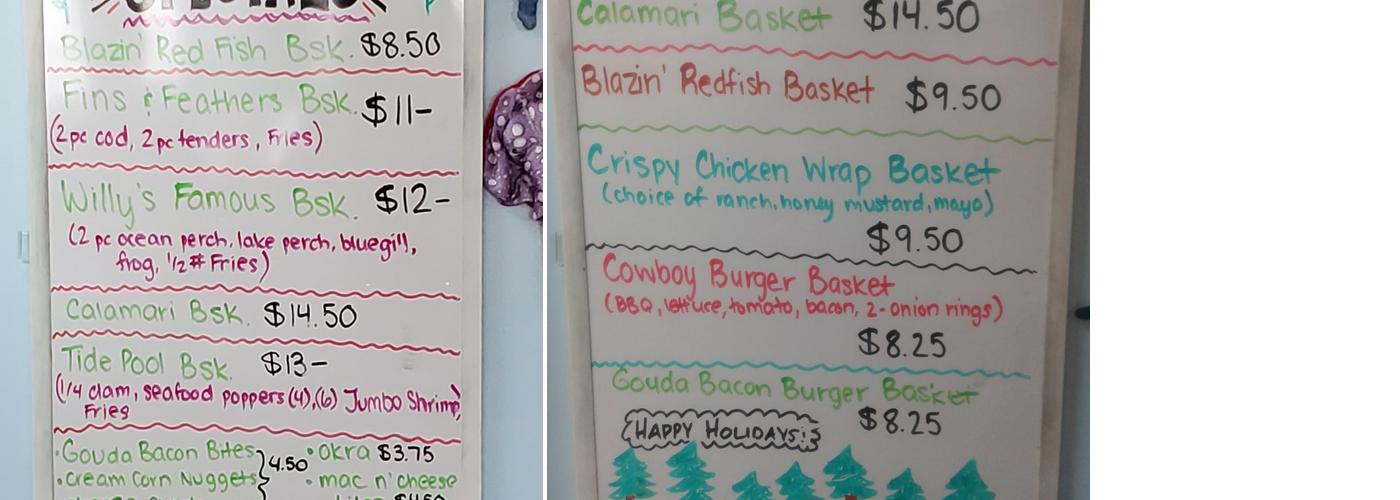 SPECIALS
Blazin' Red Fish Bsk. $8.50
Fins & Feathers Bsk. $11-
(2pc cod, 2pc tenders, Fries)
Willy's Famous Bsk. $12-
(2 pc ocean perch, lake perch, bluegill,
frog, 1/2# Fries)
Calamari Bsk. $14.50
Tide Pool Bsk. $13-
(1/4 clam, seafood poppers (4), (6) Jumbo Shrimp,
Fries
• Gouda Bacon Bites } 4.50 • okra $3.75
• cream Corn Nuggets • mac n' cheese
$4.50
Calamari Basket $14.50
Blazin' Redfish Basket $9.50
Crispy Chicken Wrap Basket
(choice of ranch, honey mustard, mayo)
$9.50
Cowboy Burger Basket
(BBQ, lettuce, tomato, bacon, 2-onion rings)
$8.25
Gouda Bacon Burger Basket
$8.25
HAPPY HOLIDAYS!